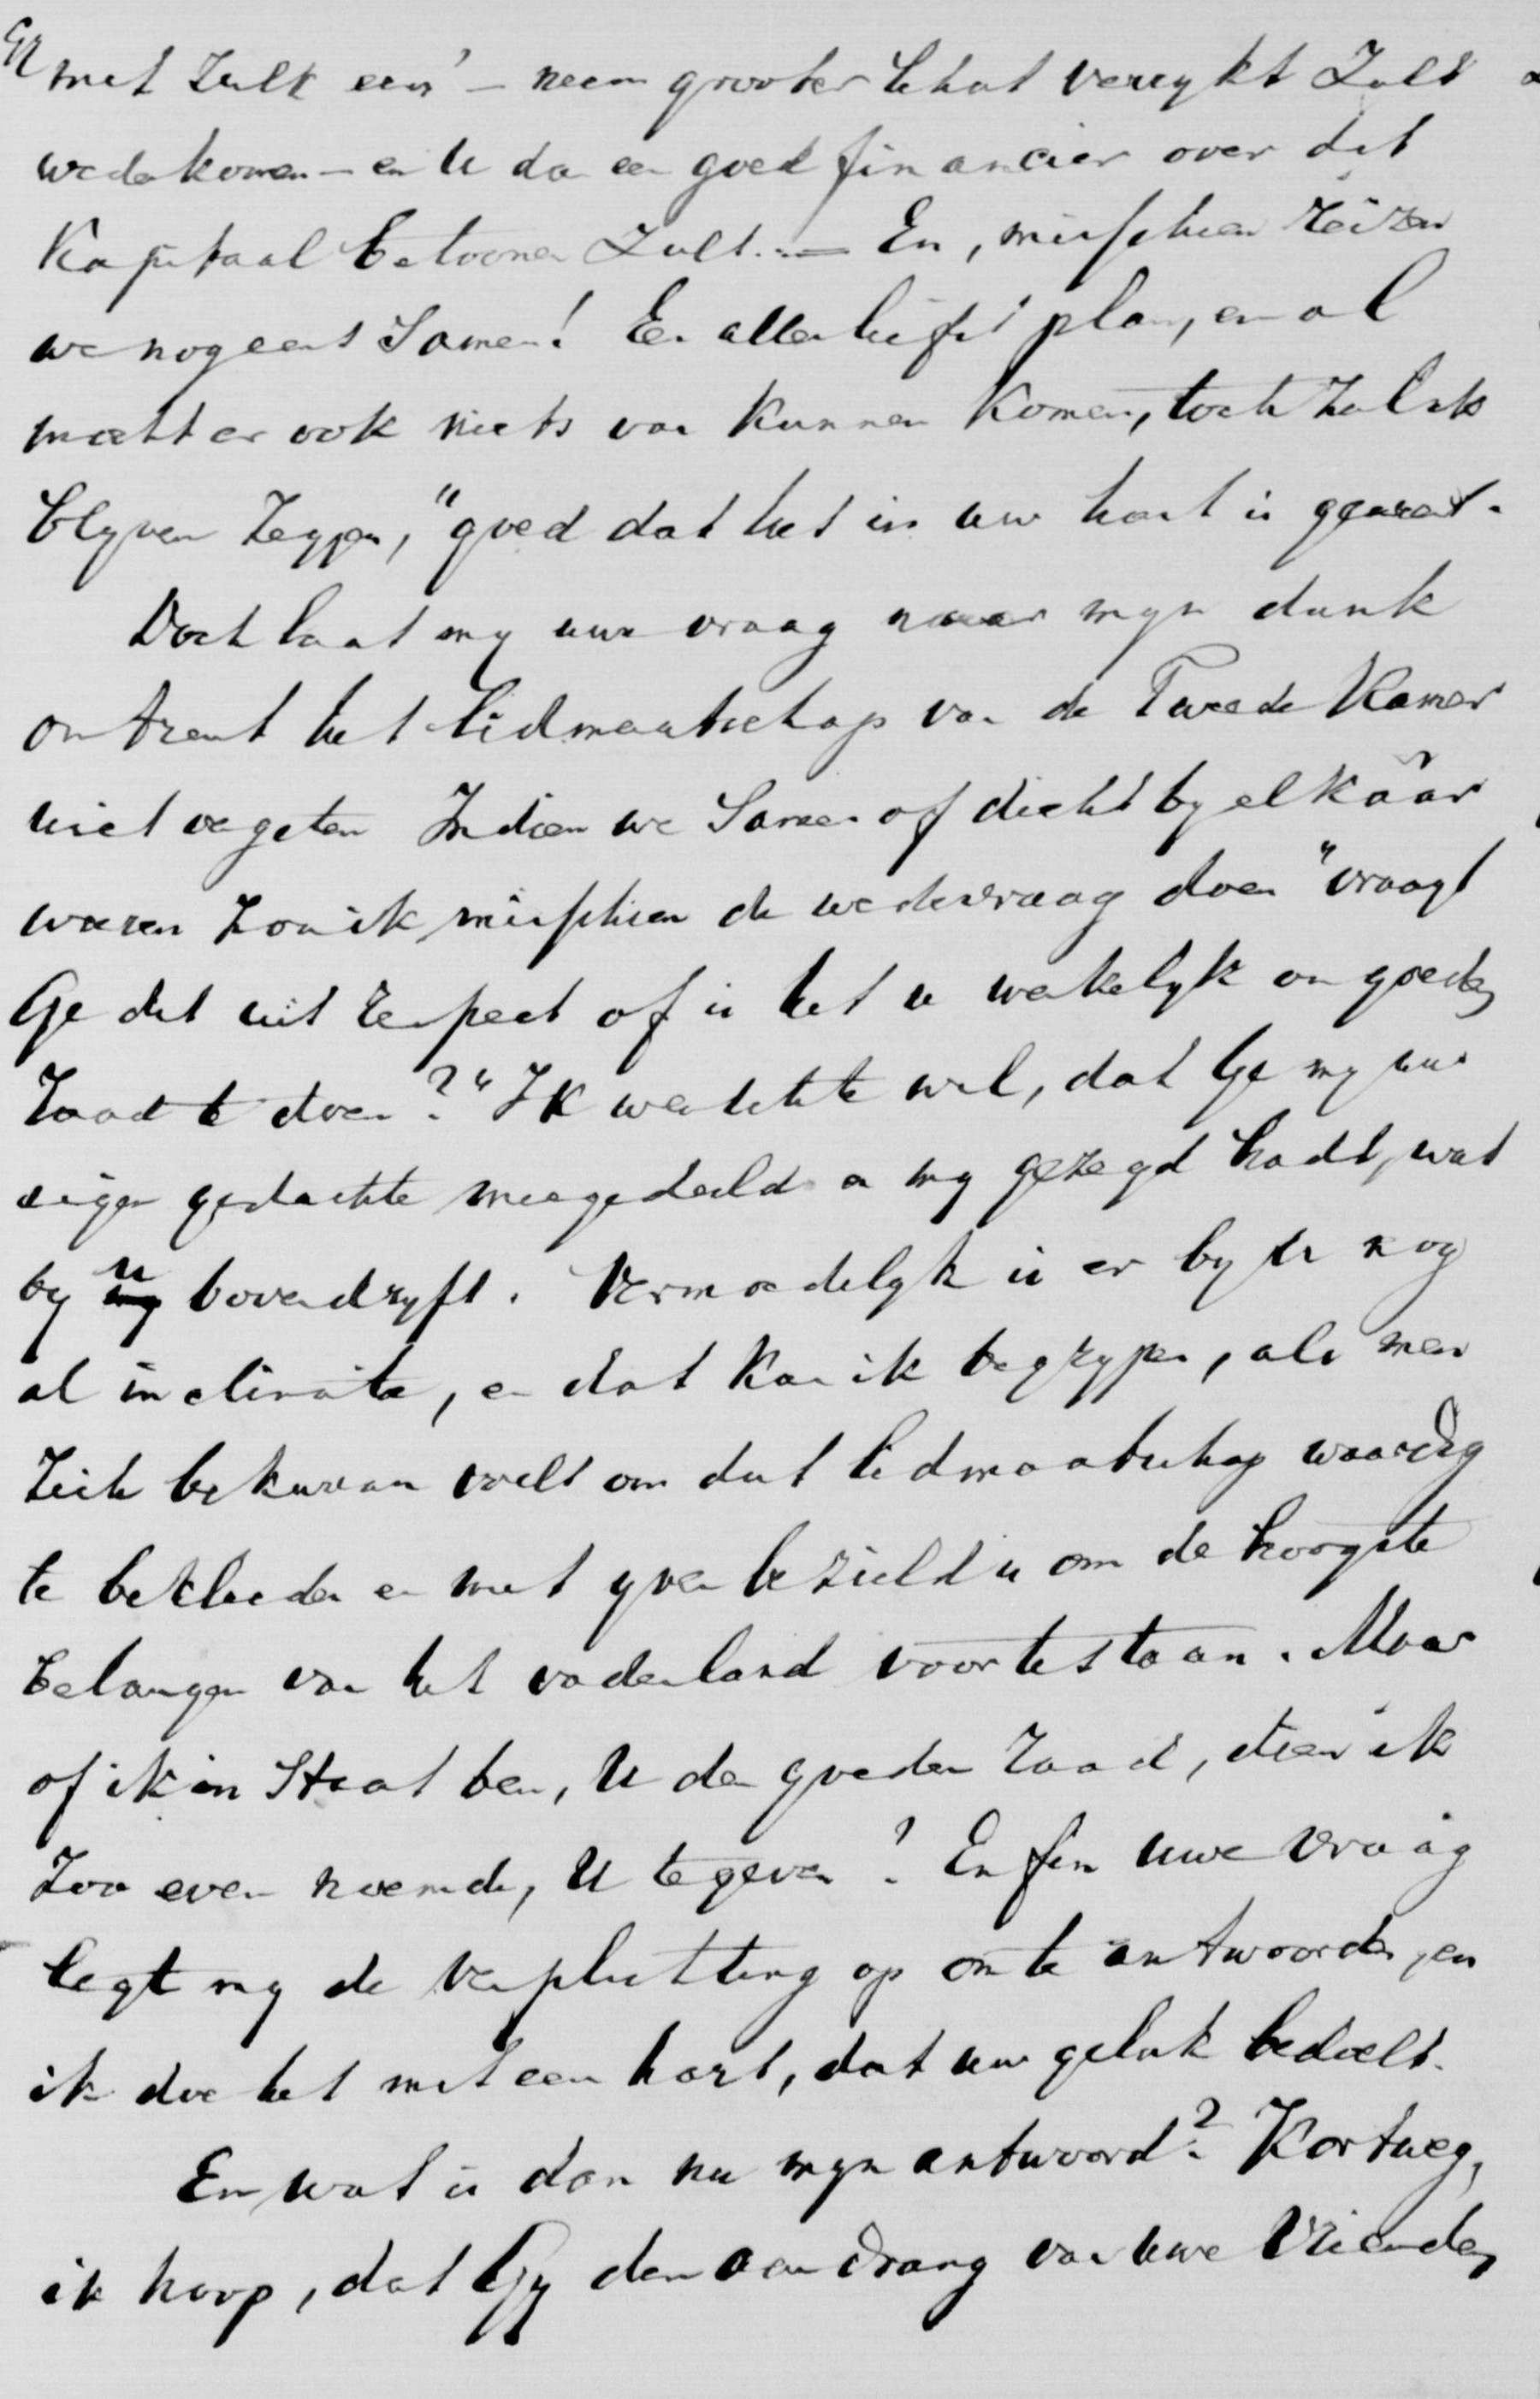 En met zulk een' – neen grooter schat verrykt zult
wederkomen – en U dan een goed financier over dat
Kapitaal betoonen zult. – En, misschien reizen
we nog eens Samen! Een allerliefst plan, en al
mocht er ook niets van kunnen komen, toch zal ik
blyven zeggen, "goed dat het in uw hart is geweest.
Doch laat my uwe vraag naar myn dunk
omtrent het lidmaatschap van de Tweede Kamer
niet vergeten Indien we Samen of dicht by elkaâr
waren zou ik misschien de wedervraag doen "vraagt
Ge dat uit respect of is het u werkelyk om goeden
raad te doen?" Ik wachtte wel, dat Ge my uw
eigen gedachte meegedeeld en my gezegd hadt, wat
by u bovendryft. Vermoedelyk is er by U nog
al inclinatie, en dat kan ik begrypen, als men
zich bekwaam voelt om dat lidmaatschap waardig
te bekleeden en met yver bezield is om de hoogste
belangen van het vaderland voortestaan. Maar
of ik in Staat ben, U den goeden raad, dien ik
zoo even noemde, U te geven? Enfin uwe vraag
legt my de verplichting op om te antwoorden, en
ik doe het met een hart, dat uw geluk bedoelt.
En wat is dan nu myn antwoord? Kortweg,
ik hoop, dat Gy den aandrang van uwe Vrienden